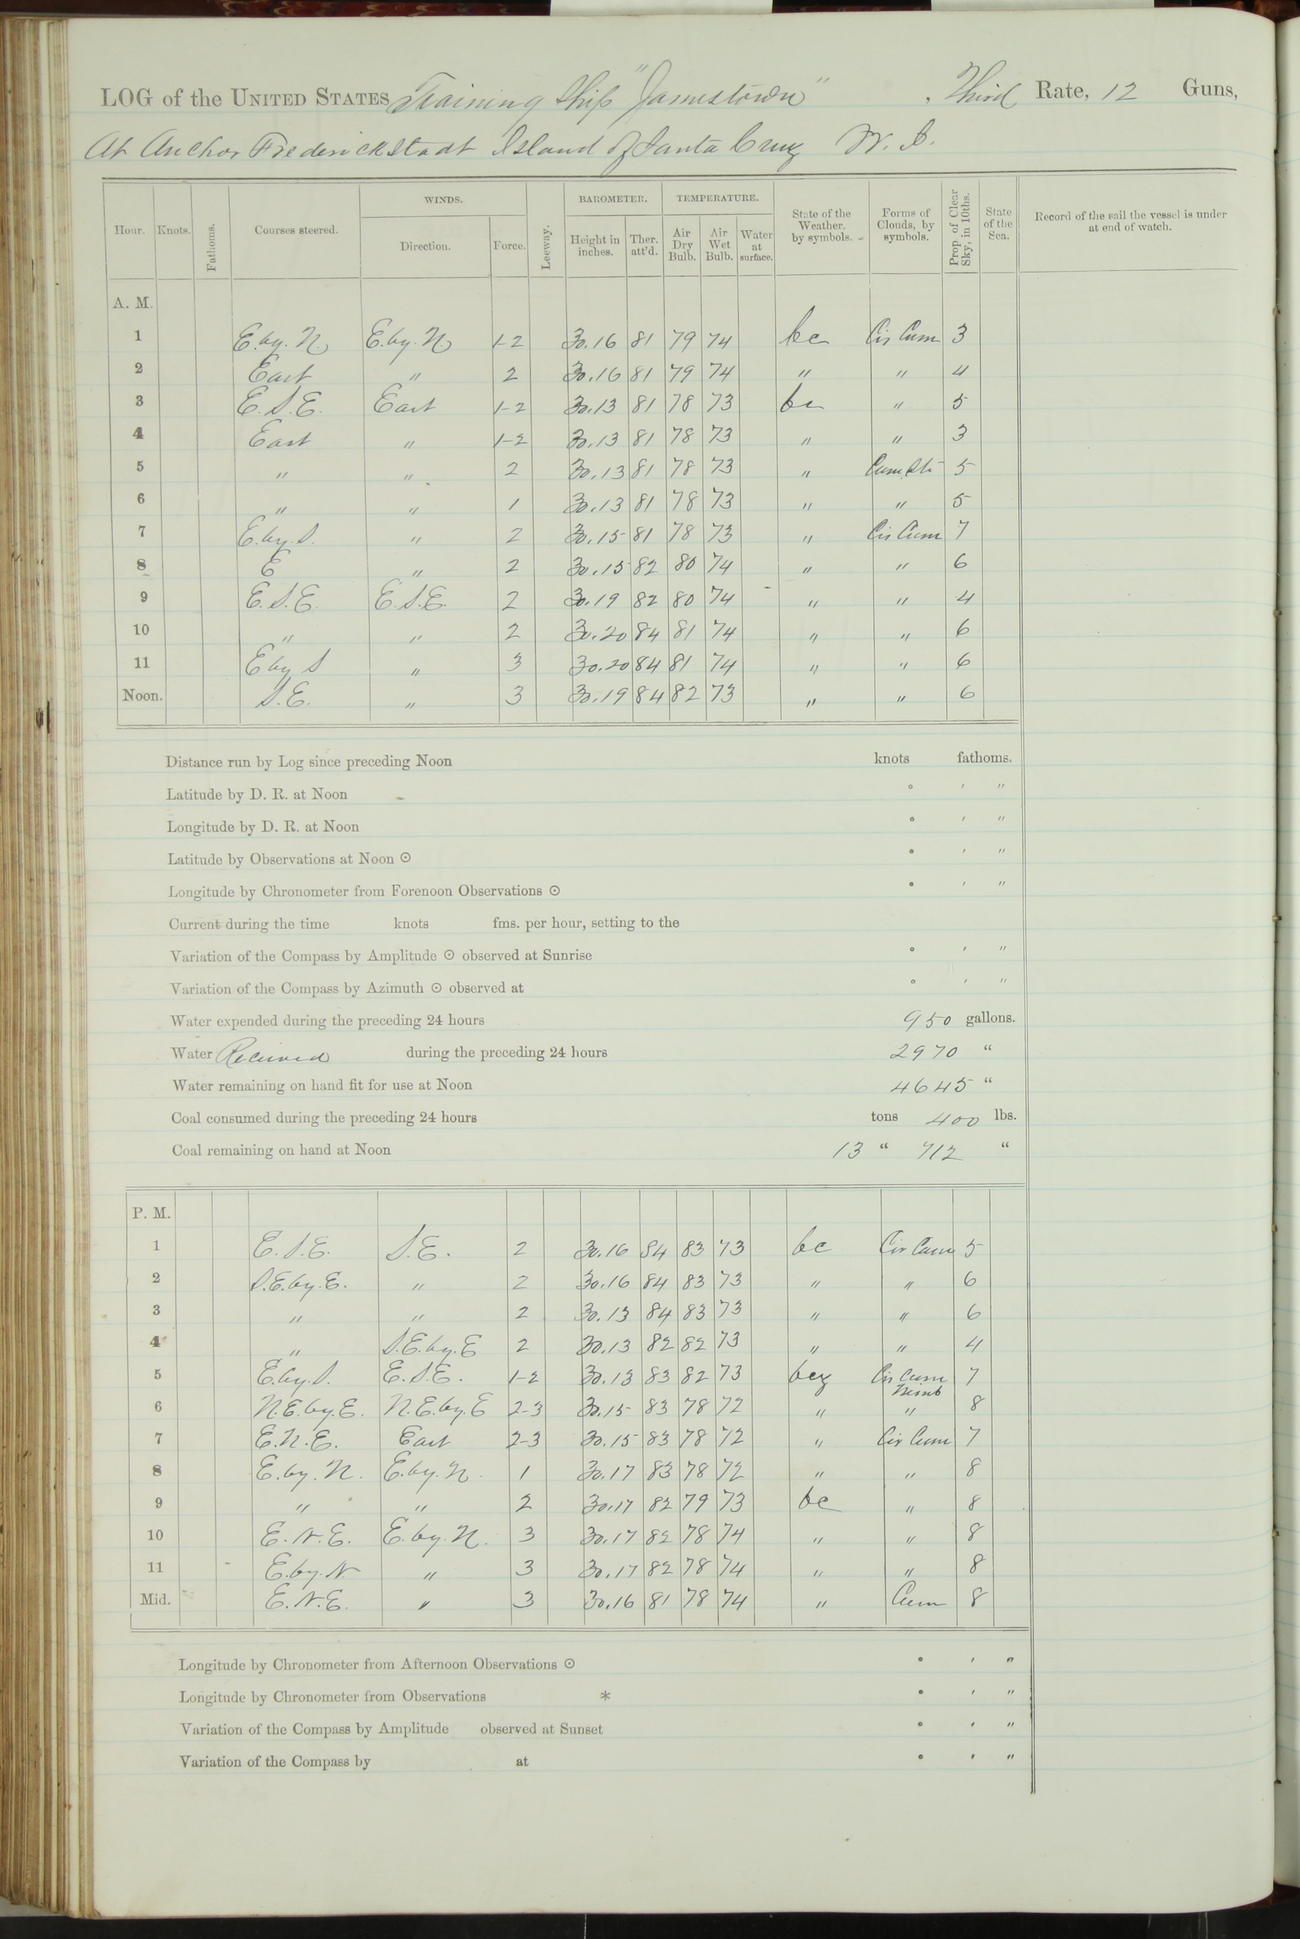 LOG of the UNITED STATES Training Ship "Jamestown", Third Rate, 12 Guns,
At Anchor Frederickstadt Island of Santa Cruz W. I.
Hour. Knots. Fathoms. Courses steered. WINDS. Direction. Force. Leeway. BAROMETER. Height in inches. Ther. att'd. TEMPERATURE. Air Dry Bulb. Air Wet Bulb. Water at surface. State of the Weather. by symbols. Forms of Clouds, by symbols. Prop of Clear Sky, in 10ths. State of the Sea. Record of the sail the vessel is under at end of watch.
A. M.
1 E. by. N. E. by. N 1-2 30.16 81 79 74 bc Cir Cum 3
2 East " 2 30.16 81 79 74 " " 4
3 E. S. E. East 1-2 30.13 81 78 73 bc " 5
4 East " 1-2 30.13 81 78 73 " " 3
5 " " 2 30.13 81 78 73 " Cum. Str 5
6 " " 1 30.13 81 78 73 " " 5
7 E. by S. " 2 30.15 81 78 73 " Cir Cum 7
8 E " 2 30.15 82 80 74 " " 6
9 E. S. E. E. S. E. 2 30.19 82 80 74 " " 4
10 " " 2 30.20 84 81 74 " " 6
11 E by S " 3 30.20 84 81 74 " " 6
Noon. S. E. " 3 30.19 84 82 73 " " 6
Distance run by Log since preceding Noon knots fathoms.
Latitude by D. R. at Noon ° ′ ″
Longitude by D. R. at Noon ° ′ ″
Latitude by Observations at Noon ⊙ ° ′ ″
Longitude by Chronometer from Forenoon Observations ⊙ ° ′ ″
Current during the time knots fms. per hour, setting to the
Variation of the Compass by Amplitude ⊙ observed at Sunrise ° ′ ″
Variation of the Compass by Azimuth ⊙ observed at ° ′ ″
Water expended during the preceding 24 hours 950 gallons.
Water Received during the preceding 24 hours 2970 "
Water remaining on hand fit for use at Noon 4645 "
Coal consumed during the preceding 24 hours tons 400 lbs.
Coal remaining on hand at Noon 13 " 712 "
P. M.
1 E. S. E. S. E. 2 30.16 84 83 73 bc Cir Cum 5
2 S. E. by. E. " 2 30.16 84 83 73 " " 6
3 " " 2 30.13 84 83 73 " " 6
4 " S. E. by. E 2 30.13 82 82 73 " " 4
5 E. by. S. E. S. E. 1-2 30.13 83 82 73 bcq Cir Cum Nimb 7
6 N. E. by. E. N. E. by. E 2-3 30.15 83 78 72 " " 8
7 E. N. E. East 2-3 30.15 83 78 72 " Cir Cum 7
8 E. by. N. E. by. N. 1 30.17 83 78 72 " " 8
9 " " 2 30.17 82 79 73 bc " 8
10 E. N. E. E. by. N. 3 30.17 82 78 74 " " 8
11 E. by. N " 3 30.17 82 78 74 " " 8
Mid. E. N. E. " 3 30.16 81 78 74 " Cum 8
Longitude by Chronometer from Afternoon Observations ⊙ ° ′ ″
Longitude by Chronometer from Observations * ° ′ ″
Variation of the Compass by Amplitude observed at Sunset ° ′ ″
Variation of the Compass by at ° ′ ″